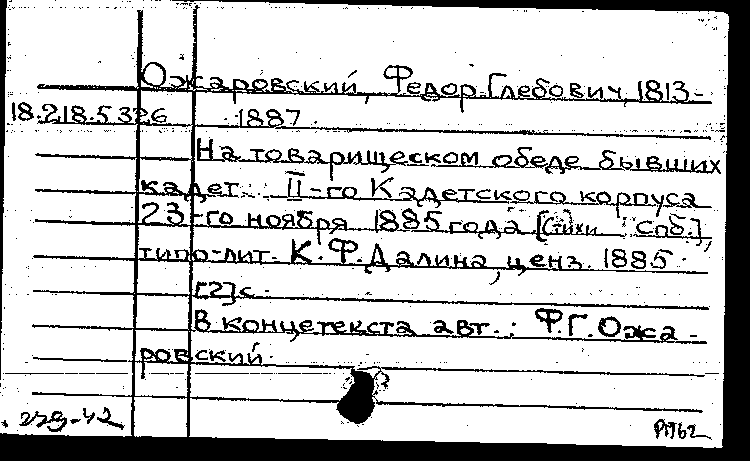 Ожаровский, Федор Глебович, 1813-
18.218.5.326 1887.
На товарищеском обеде бывших
кадет. II-го Кадетского корпуса
23-го ноября 1885 года. [Стихи. Спб.],
типо-лит. К.Ф. Далина, ценз. 1885.
[2] с.
В конце текста авт.: Ф.Г. Ожа-
ровский.
279-42
Р1762